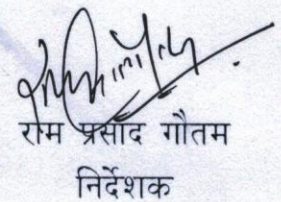 राम प्रसाद गौतम
निर्देशक